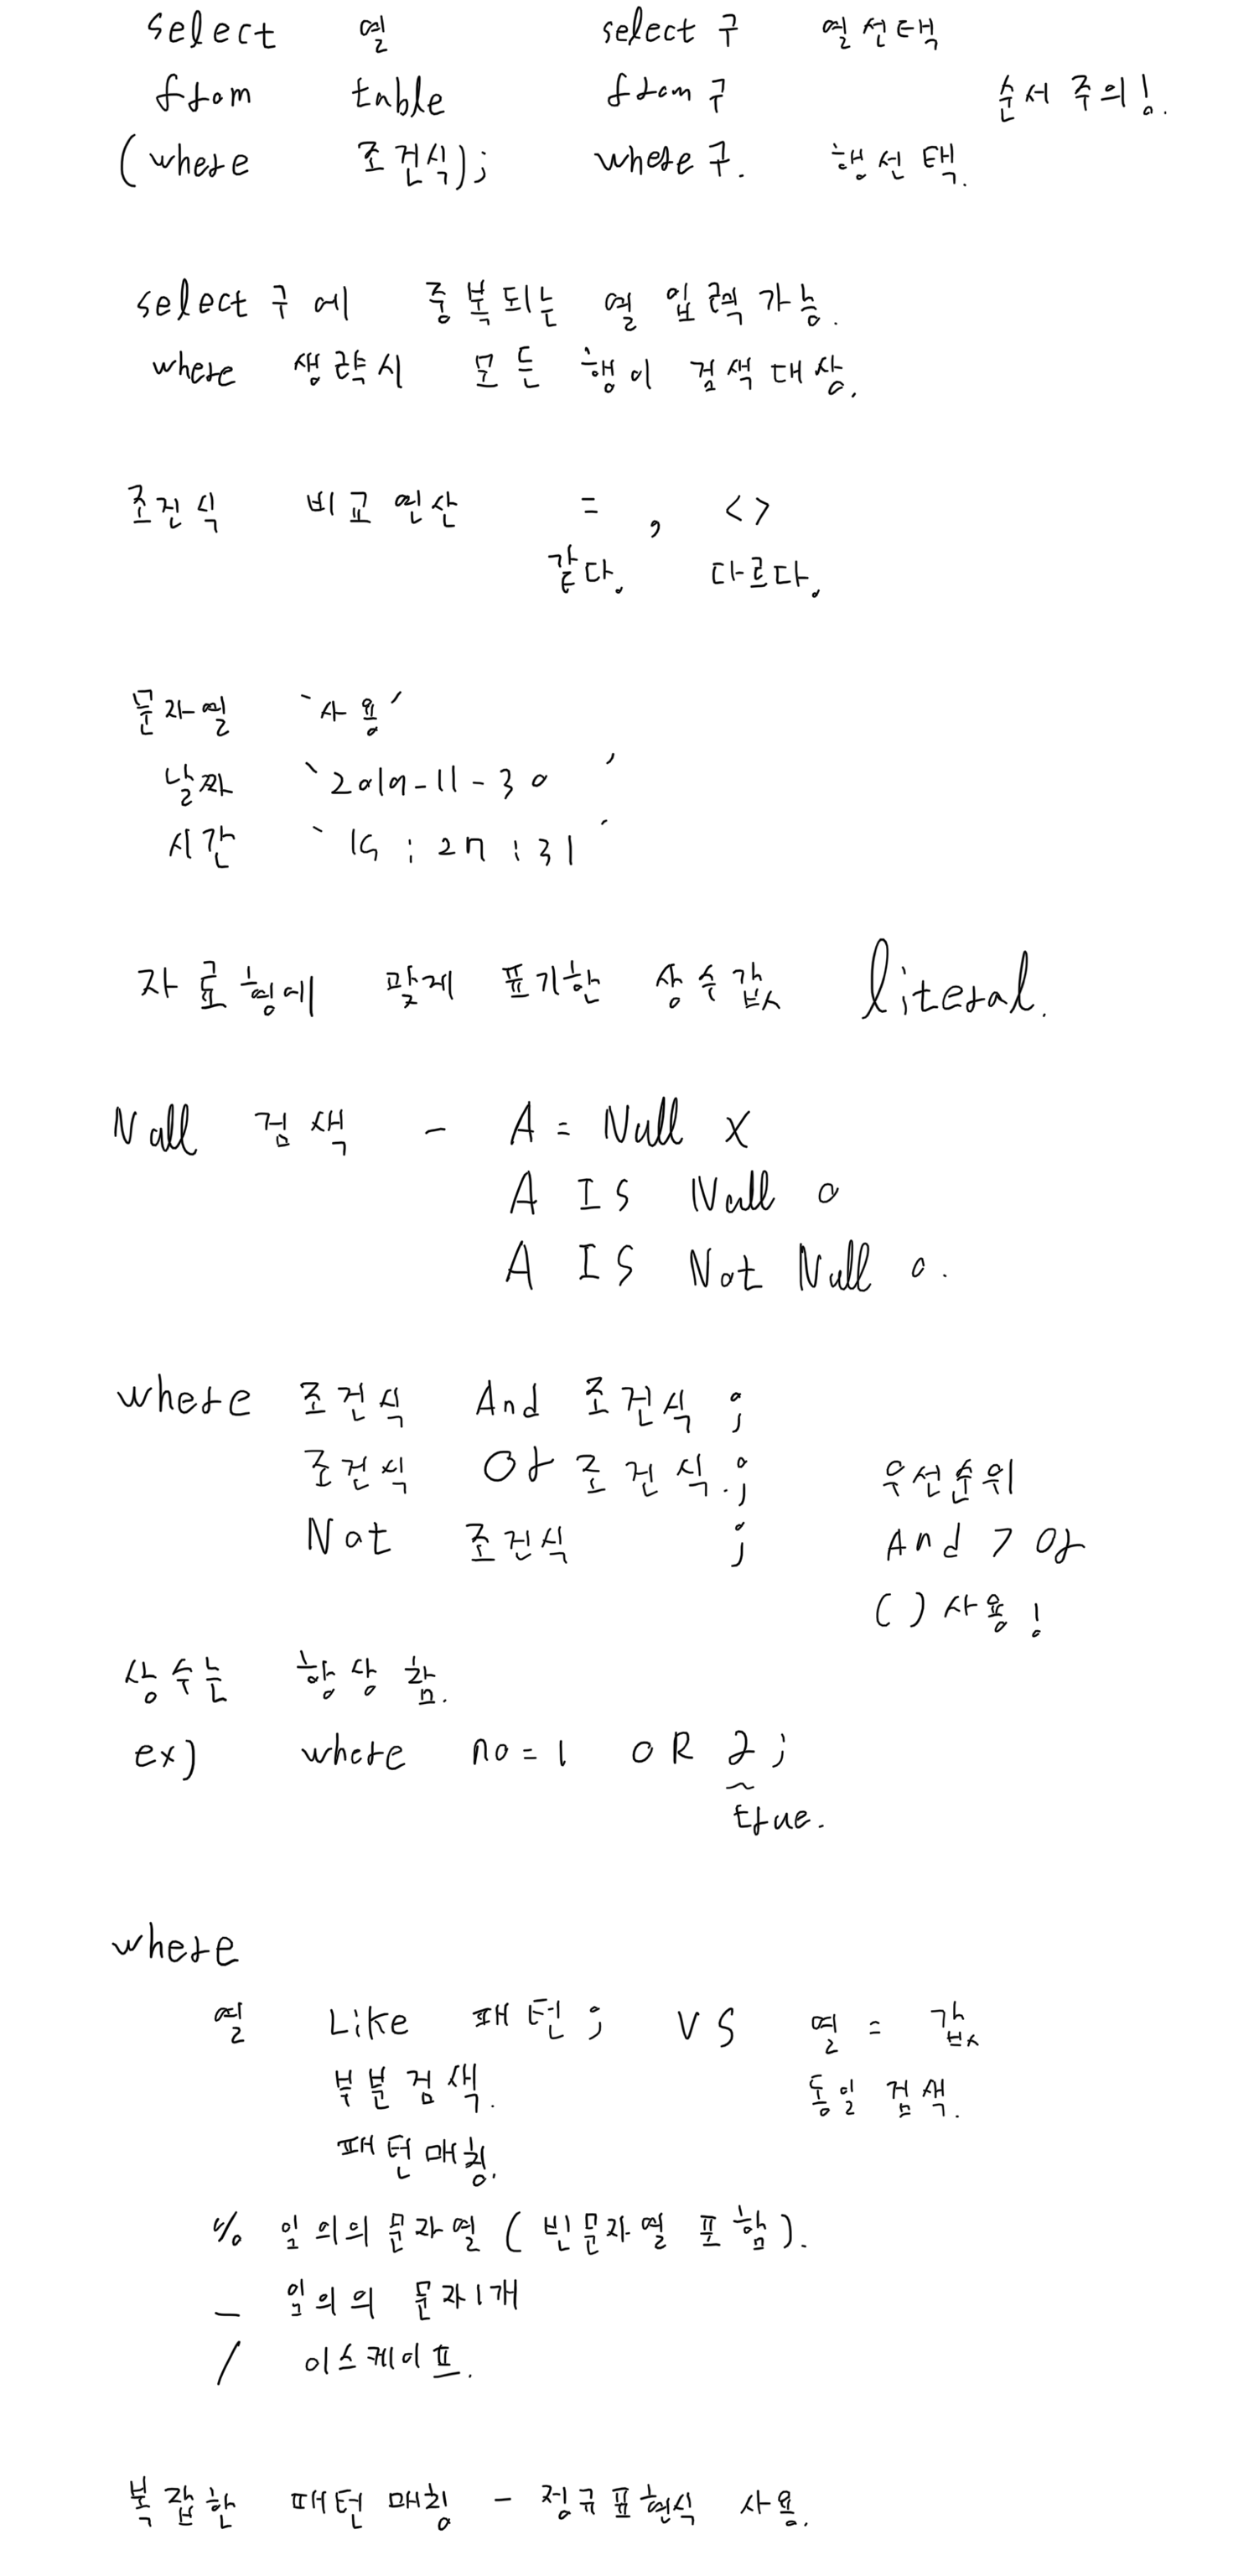 select 열 select 구 열 선택
from table from 구 순서 주의!
(where 조건식); where 구. 행 선택.
select 구에 중복되는 열 입력 가능.
where 생략시 모든 행이 검색 대상.
조건식 비교 연산 = , <>
같다. 다르다.
문자열 `사용´
날짜 `2019-11-30´
시간 `15:27:31´
자료형에 맞게 표기한 상수값 literal.
Null 검색 - A = Null X
A IS Null O
A IS Not Null O.
where 조건식 And 조건식 ;
조건식 Or 조건식.; 우선순위
Not 조건식 ; And > Or
( ) 사용!
상수는 항상 참.
ex) where no = 1 OR 2;
true.
where
열 Like 패턴; VS 열 = 값
부분 검색. 동일 검색.
패턴 매칭.
% 임의의 문자열 ( 빈문자열 포함 ).
_ 임의의 문자 1개
/ 이스케이프.
복잡한 패턴 매칭 - 정규표현식 사용.